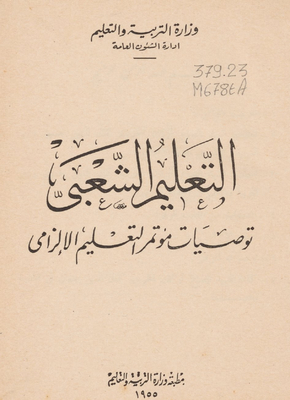 وزارة التربية والتعليم
ادارة الشئون العامة
379.23
M678tA
التعليم الشعبى
توصيات مؤتمر التعليم الالزامى
مطبعة وزارة التربية والتعليم
١٩٥٥